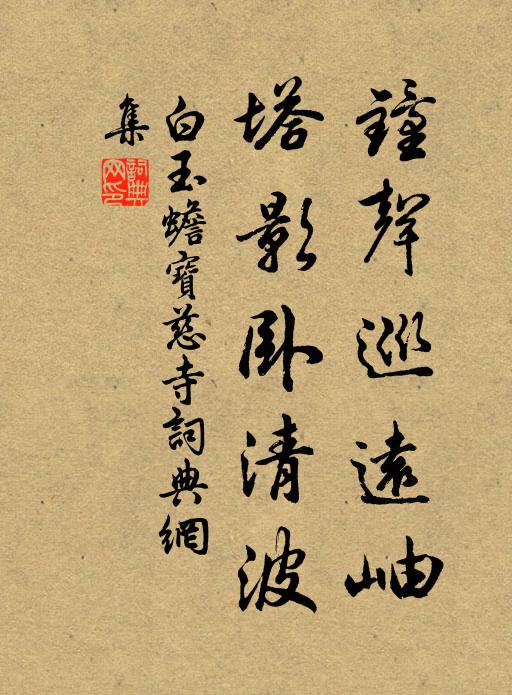 鐘聲巡遠岫
塔影臥清波
白玉蟾寶慈寺詞典網
集
詞典網印